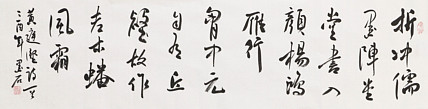 折冲儒
墨陣堂
堂書入
顏楊鴻
雁行
胷中元
自有丘
壑故作
老木蟠
風霜
黃庭堅詩一
酉年